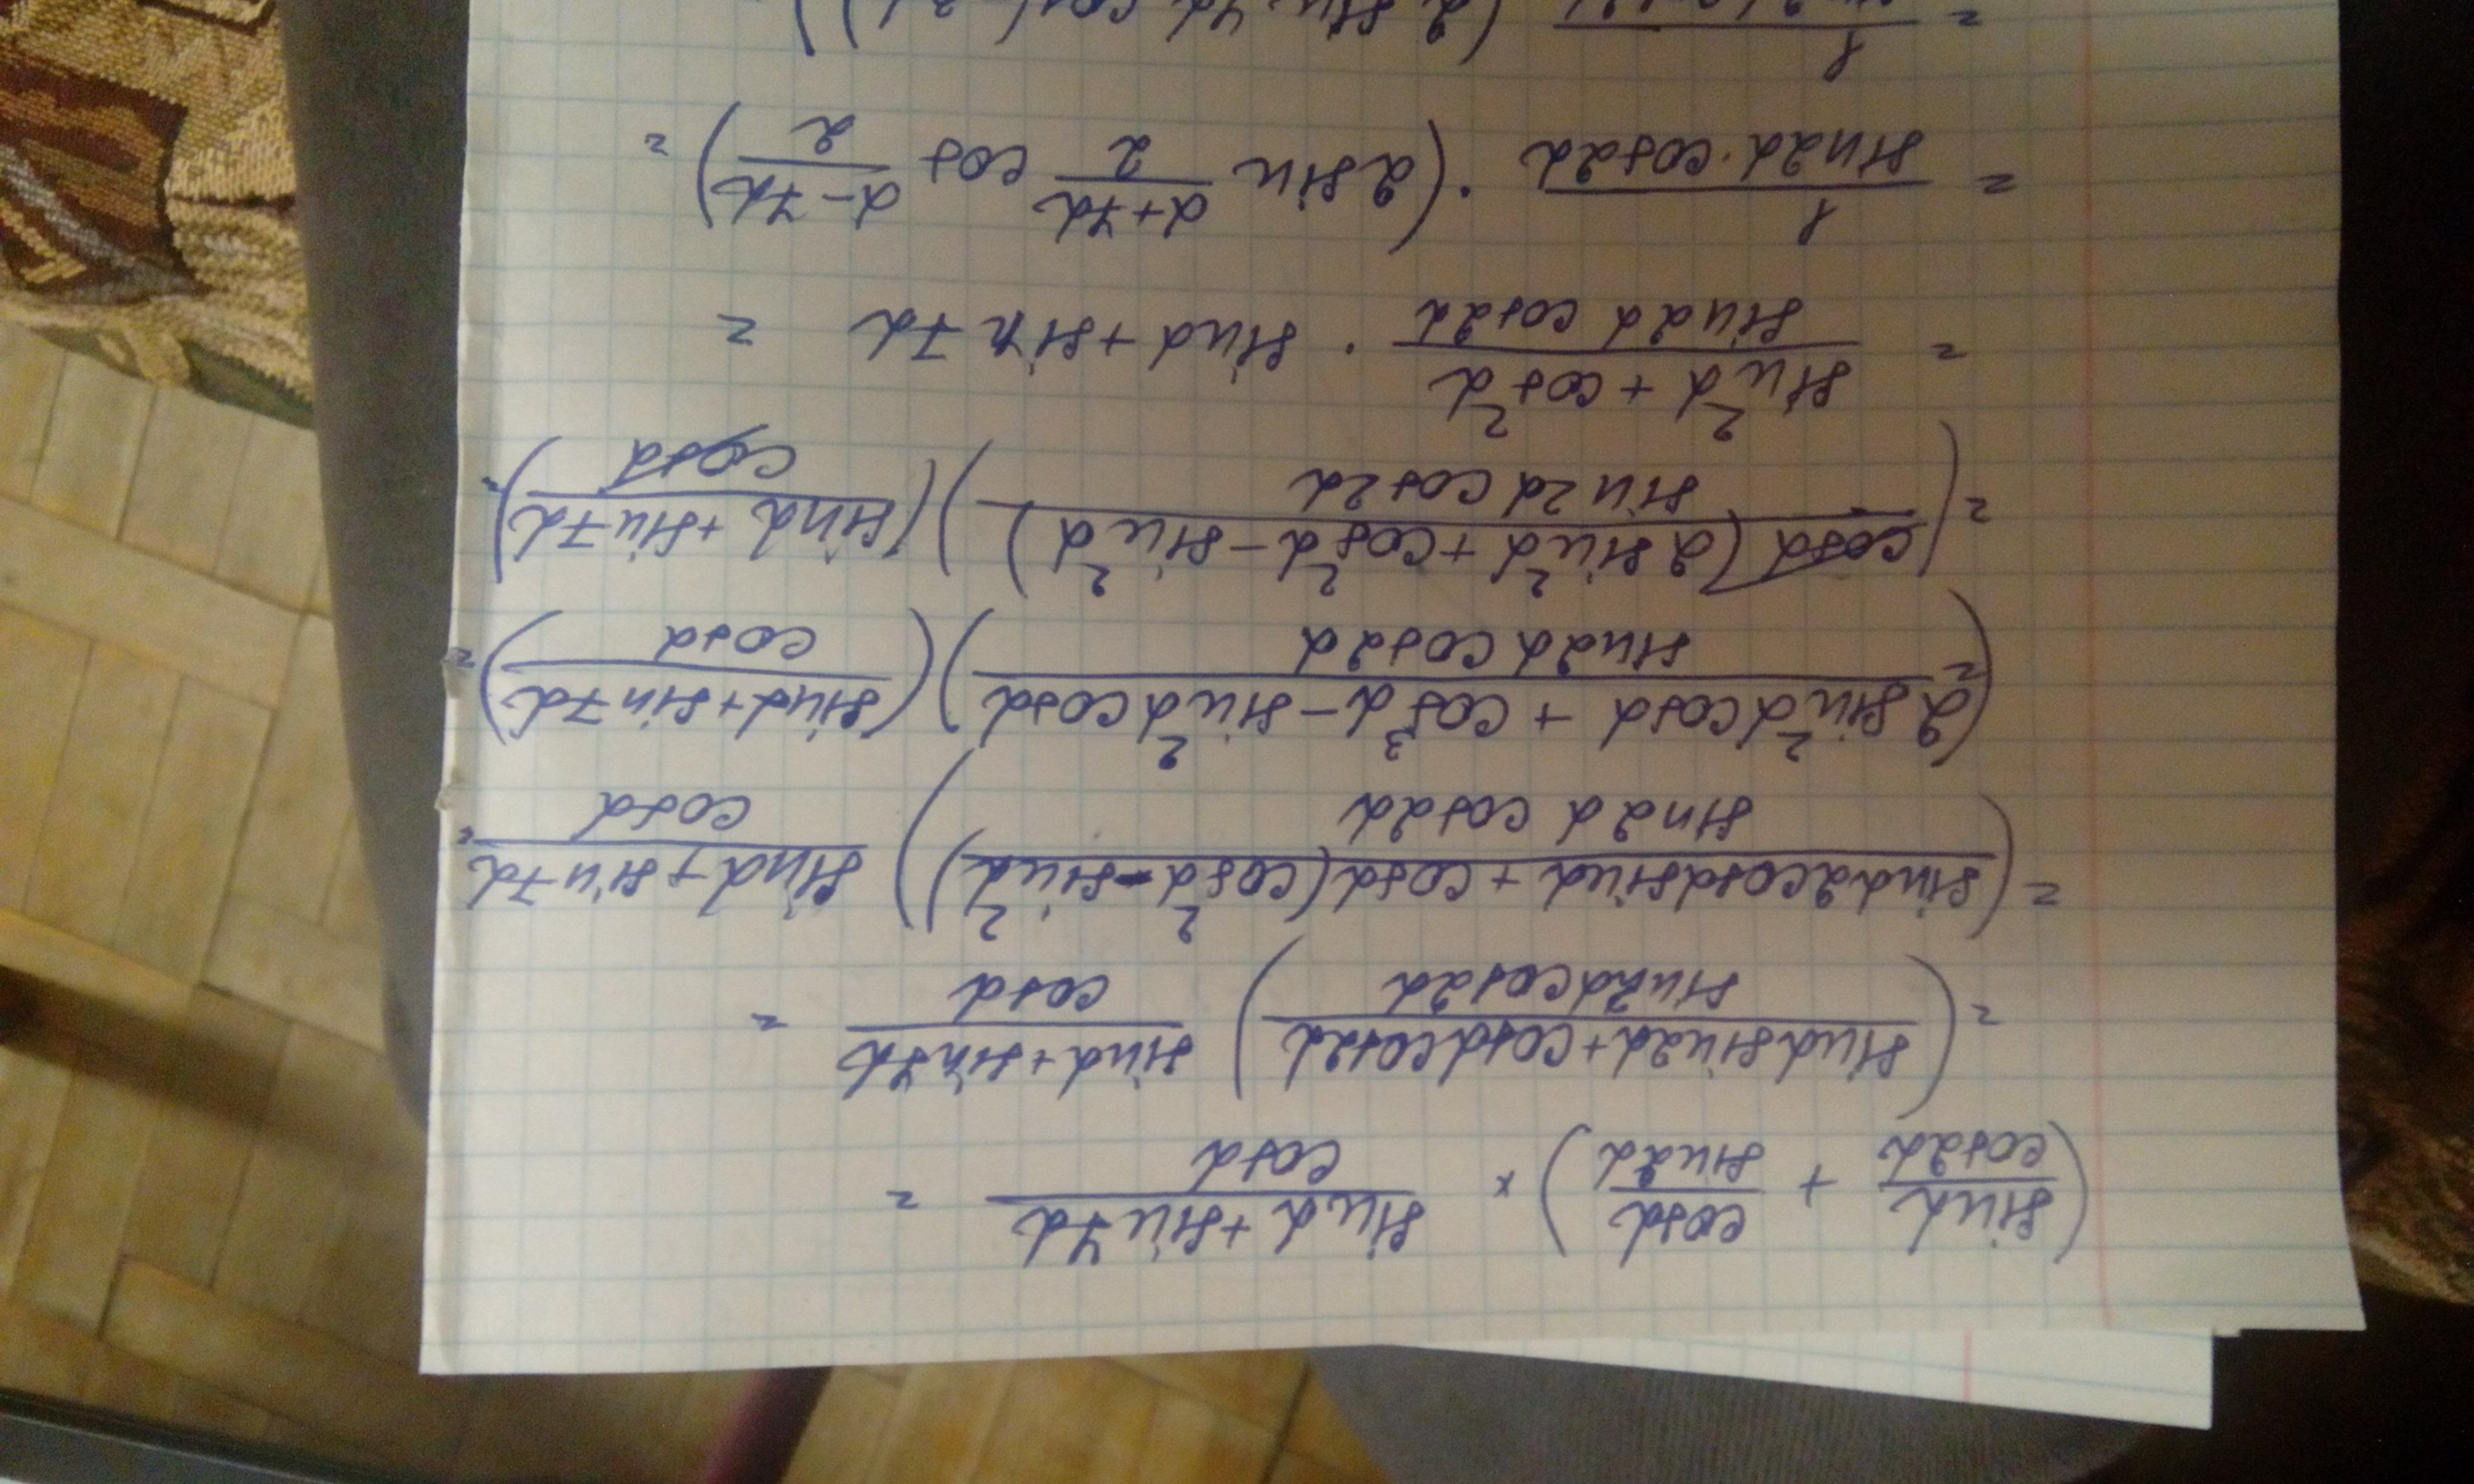 (sinα/cos2α + cosα/sin2α) × (sinα + sin7α)/cosα =
= ((sinα sin2α + cosα cos2α)/(sin2α cos2α)) (sinα + sin7α)/cosα =
= ((sinα 2cosα sinα + cosα(cos²α - sin²α))/(sin2α cos2α)) (sinα + sin7α)/cosα =
= ((2sin²α cosα + cos³α - sin²α cosα)/(sin2α cos2α)) ((sinα + sin7α)/cosα) =
= ((cosα(2sin²α + cos²α - sin²α))/(sin2α cos2α)) ((sinα + sin7α)/cosα) =
= (sin²α + cos²α)/(sin2α cos2α) · sinα + sin7α =
= 1/(sin2α · cos2α) · (2sin (α+7α)/2 cos (α-7α)/2) =
= 1 (2 sin 4α cos(-3